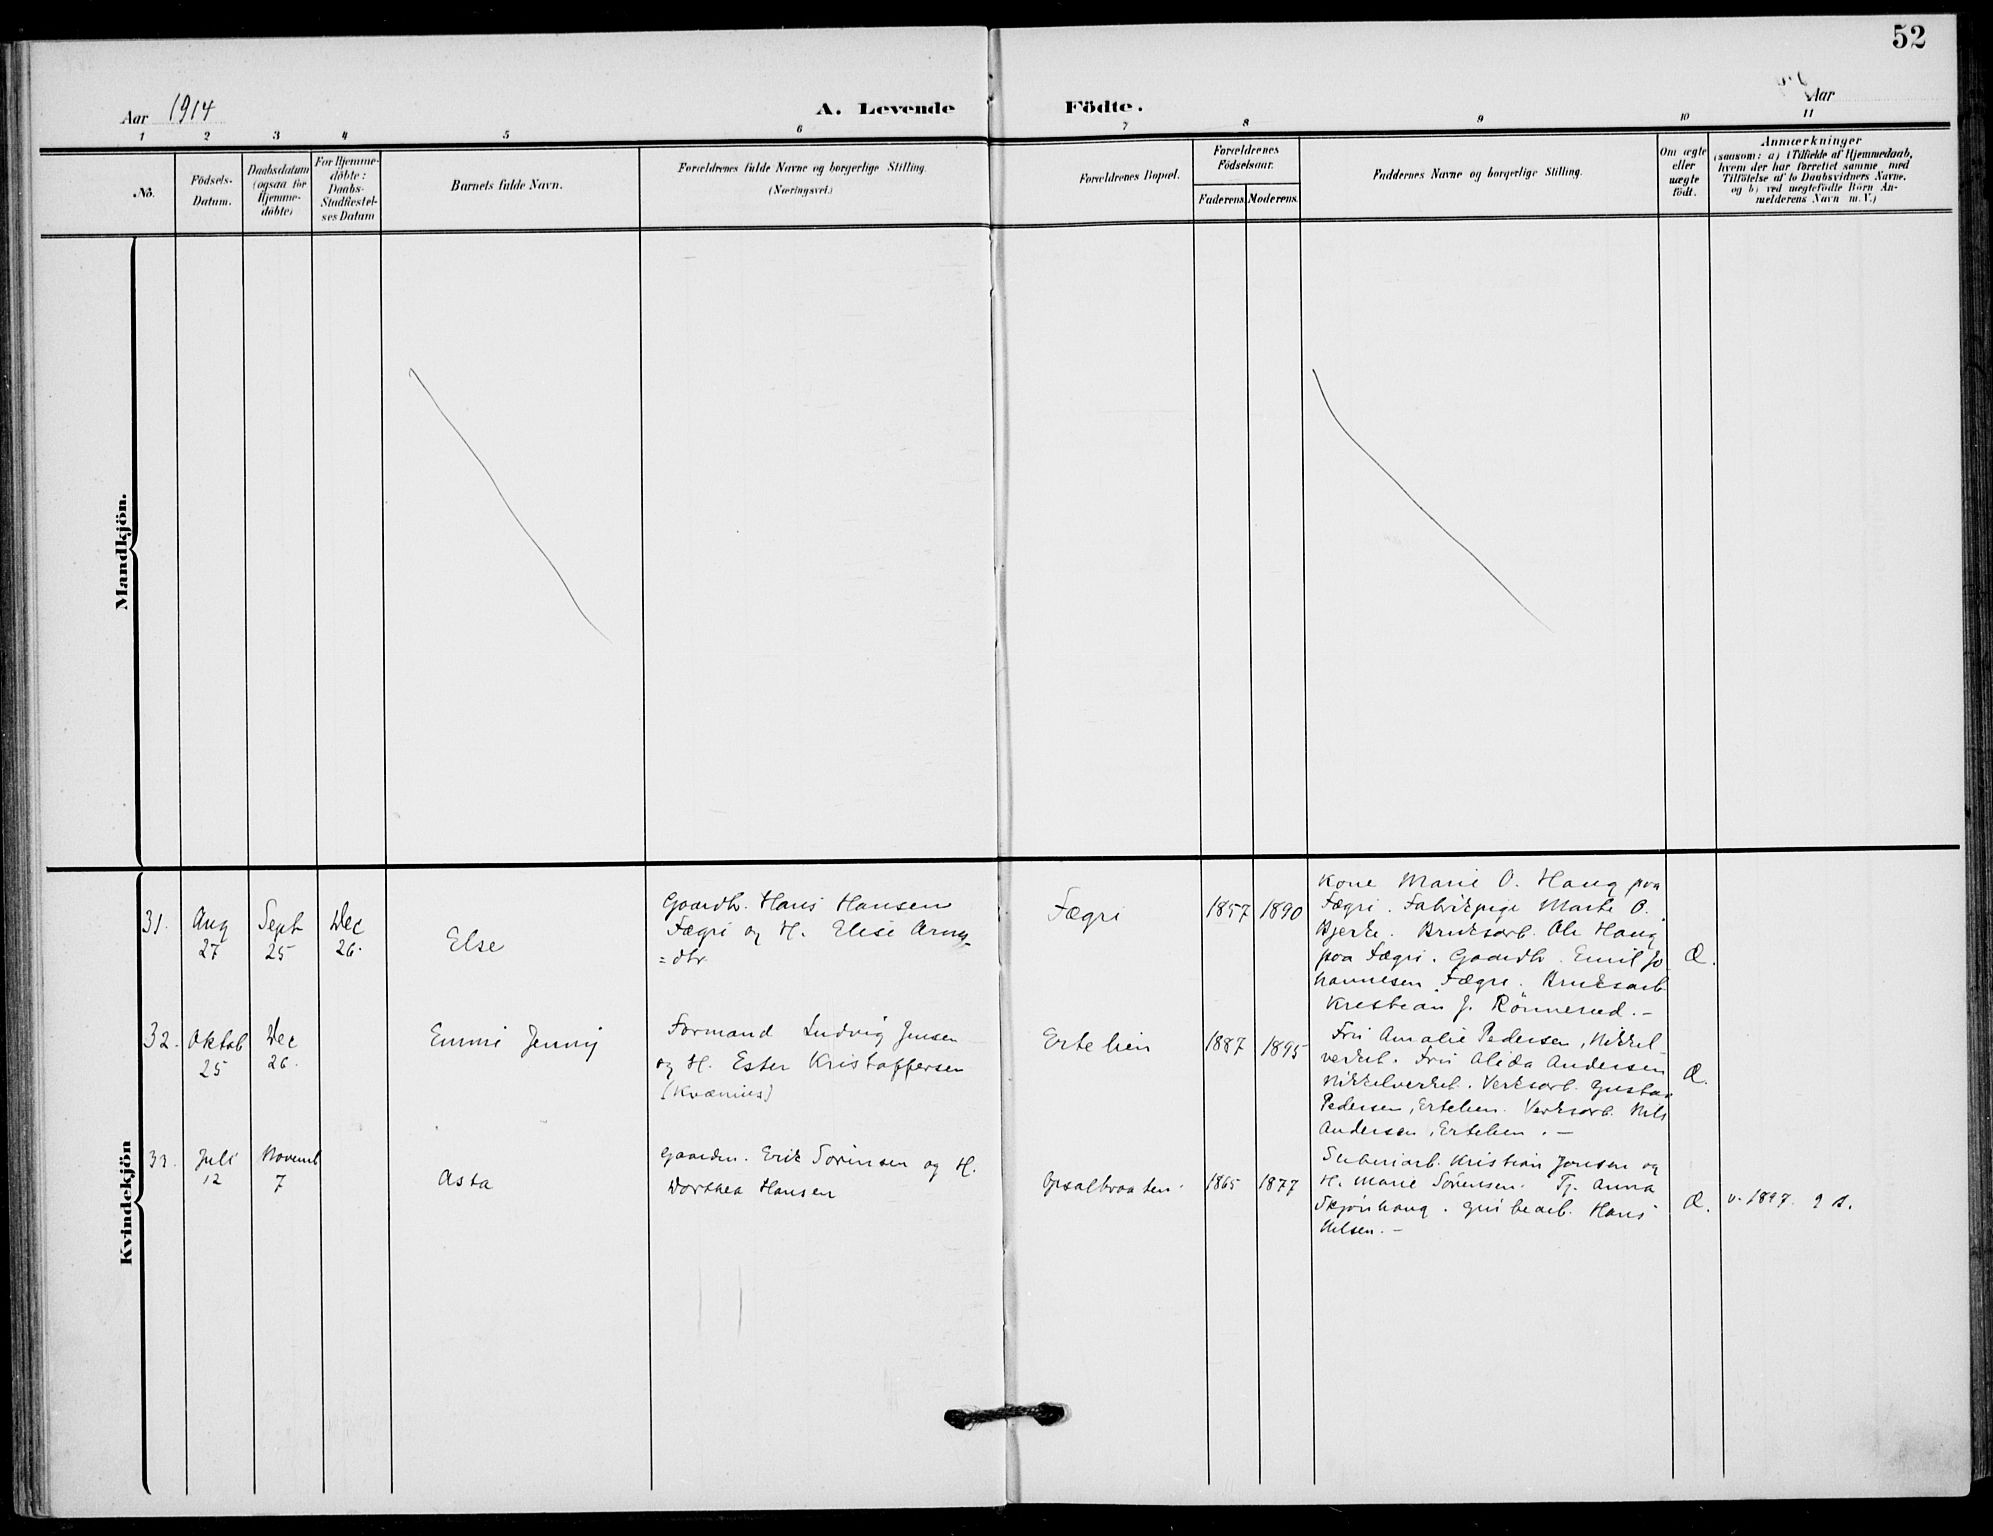 52
Aar 1914
A. Levende Födte.
Aar
1 2 3 4 5 6 7 8 9 10 11
No.
Födsels-
Datum.
Daabsdatum
(ogsaa for
Hjemme-
döbte)
For Hjemme-
döbte:
Daabs-
Stadfæstel-
ses Datum
Barnets fulde Navn.
Forældrenes fulde Navne og borgerlige Stilling.
(Næringsvei.)
Forældrenes Bopæl.
Forældrenes
Födselsaar.
Faderens. Moderens.
Faddernes Navne og borgerlige Stilling.
Om ægte
eller
uægte
födt.
Anmærkninger
(saasom: a) i Tilfælde af Hjemmedaab,
hvem der har forrettet samme med
Tilföielse af to Daabsvidners Navne.
og b) ved uægtefödte Börn An-
melderens Navn m. V.)
Mandkjön.
Kvindekjön
31.
Aug
27
Sept
25
Dec
26.
Else
Gaardbr. Hans Hansen
Fægri og H. Elise Arns-
=dtr
Fægri
1857 1890
Kone Marie O. Haug paa
Fægri. Fabrikpige Marte O.
Bjerke. Bruksarb. Ole Haug
paa Fægri. Gaardbr. Emil Jo
hannesen Fægri. Bruksarb.
Kristian J. Rönnerud.-
Æ.
32.
Oktob
25
Dec
26.
Emmi Jenny
Formand Ludvig Jensen
og H. Ester Kristoffersen
(Kvænius)
Ertelien
1887 1895
Fru Amalie Pedersen, Nikkel-
verket. Fru Alida Andersen
Nikkelverket. Verksarb. Gustav
Pedersen, Ertelien. Verksarb. Nils
Andersen, Ertelien.-
Æ.
33.
Juli
12
Novemb
7
Asta
Gaardm. Erik Sörensen og H.
Dorthea Hansen
Opsalbraaten.
1865 1877
Kristian Jonsen og
H. Marie Sörensen. Tj. Anna
Skjönhaug. Grubearb. Hans
Nilsen.-
Æ.
v. 1897. 9 B.